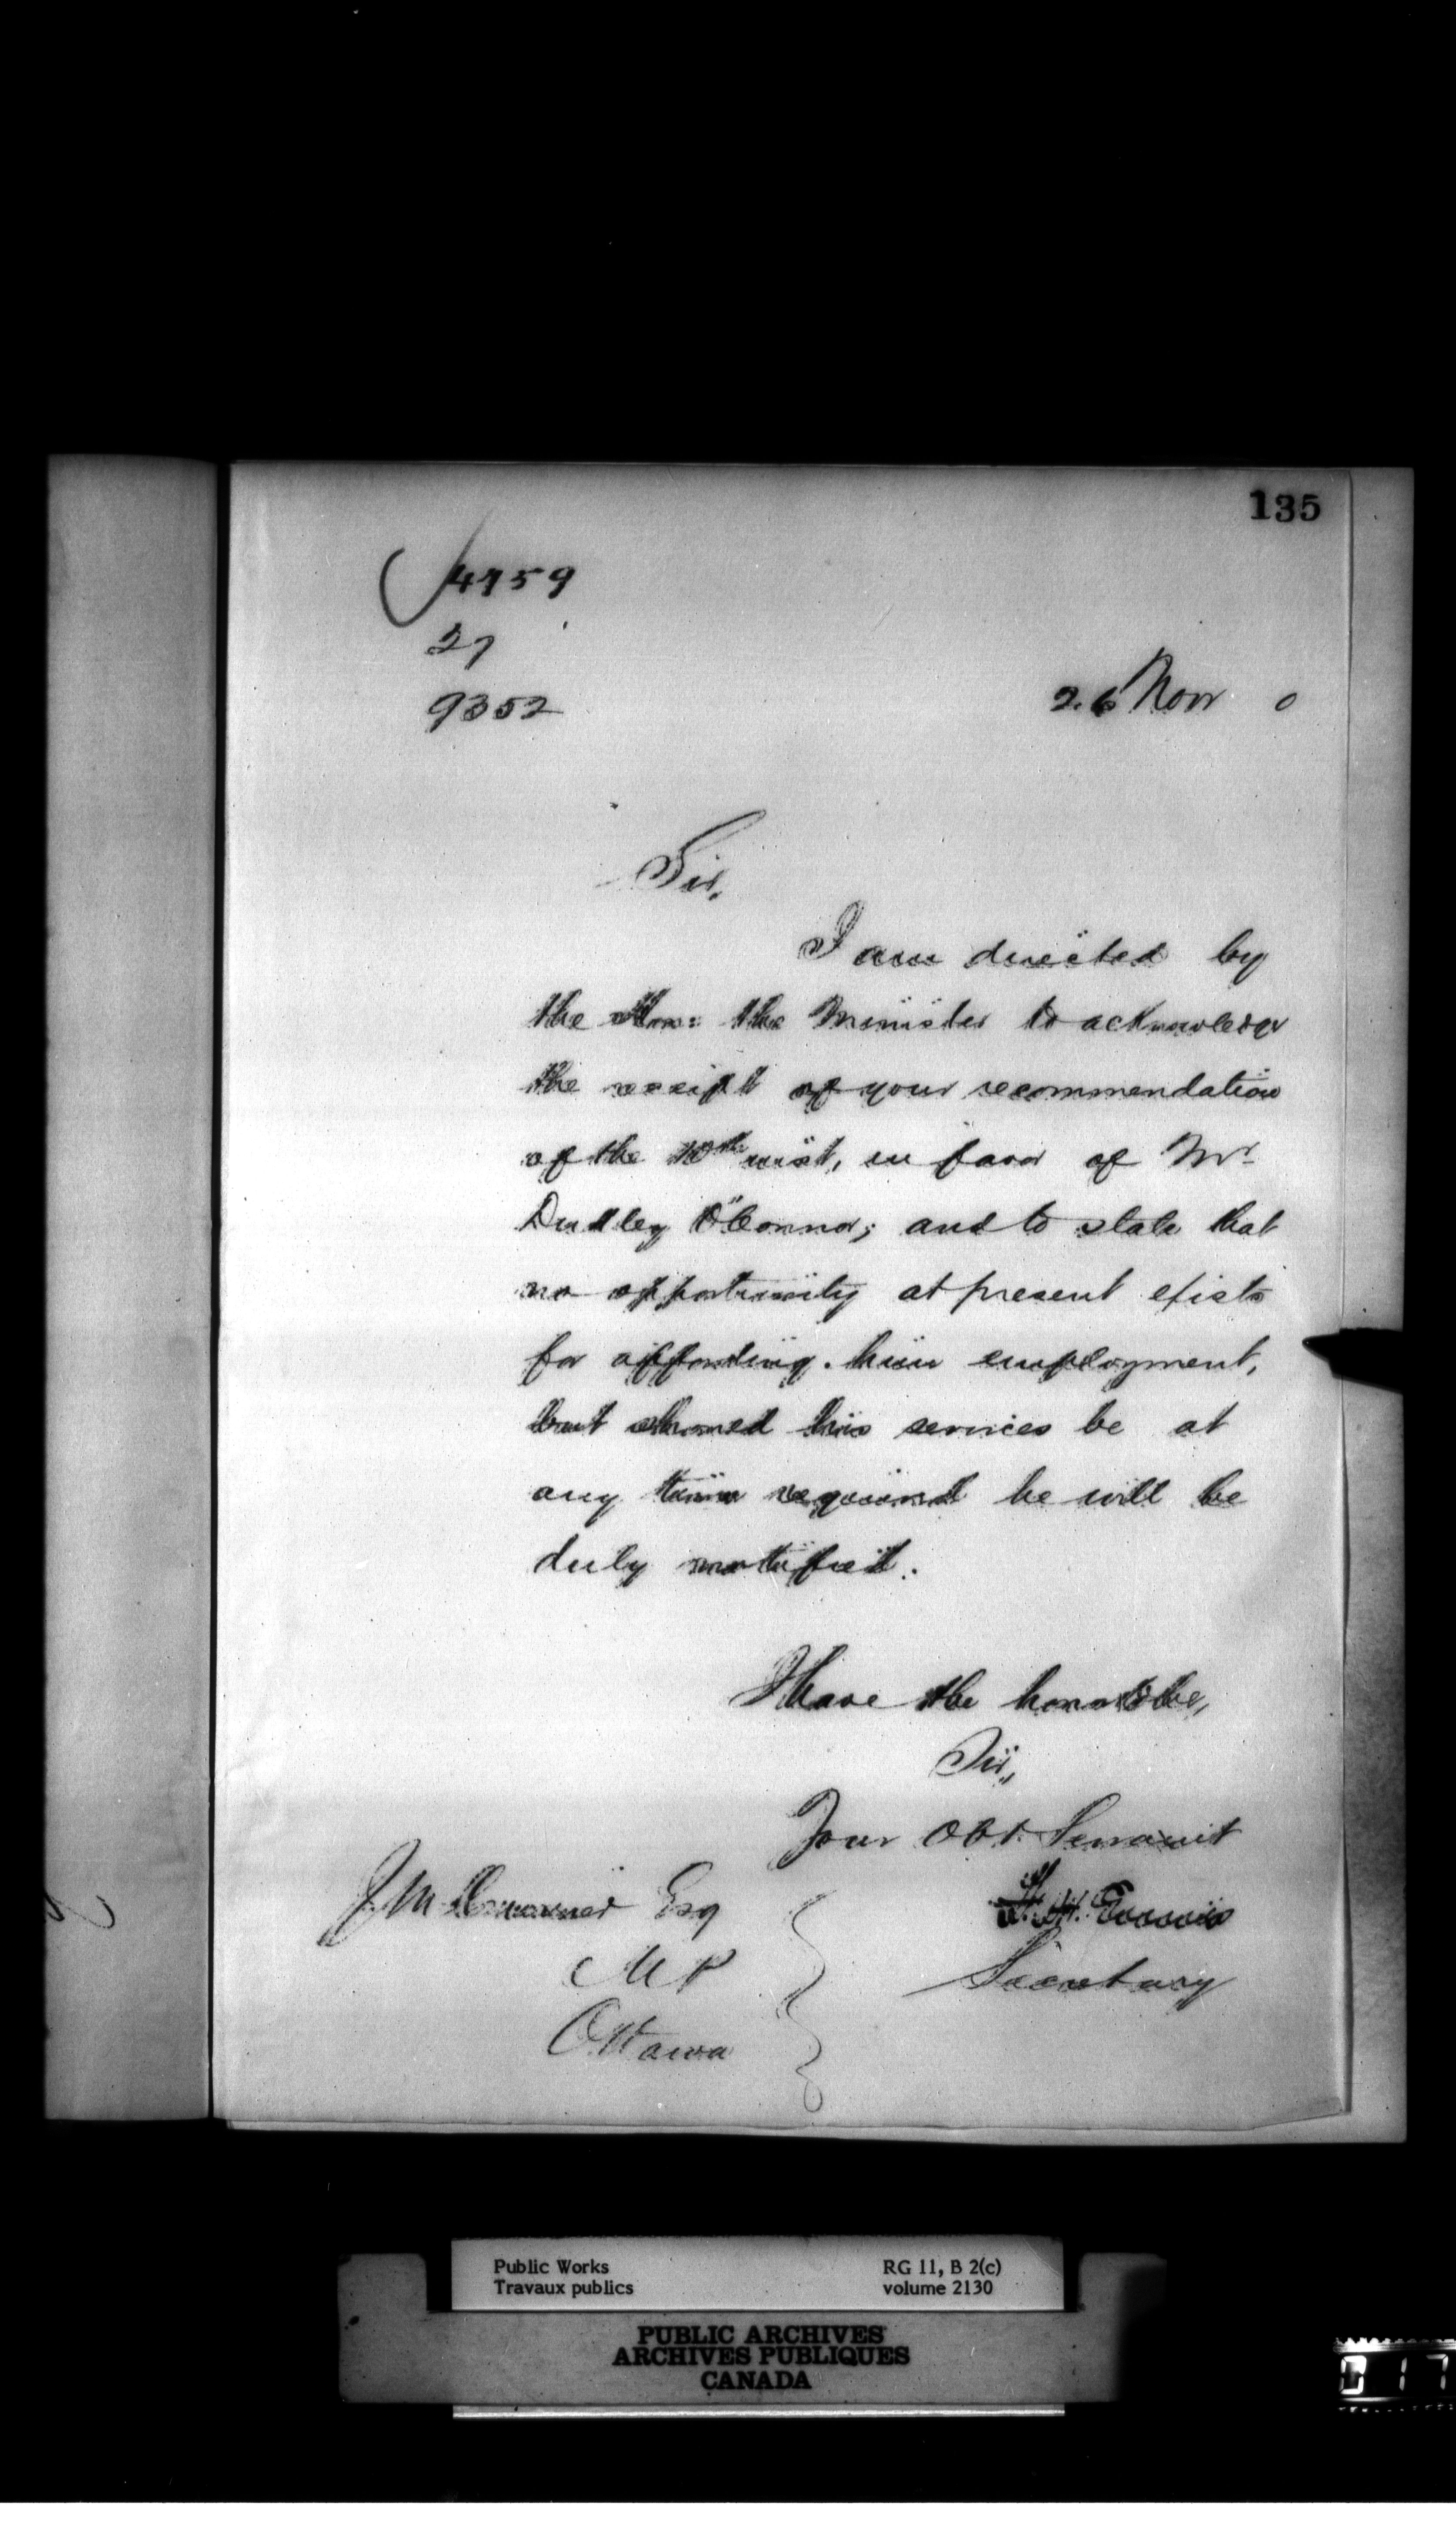 135
4759
27
9352
26 Novr 0
Sir,
I am directed by
the Hon: the Minister to acknowledge
the receipt of your recommendation
of the 10th inst, in favor of Mr
Dudley O'Connor; and to state that
no opportunity at present exists
for affording him employment,
but should his services be at
any time required he will be
duly notified.
I have the honor to be,
Sir,
Your Obt. Servant
Secretary
J M Esq
MP
Ottawa
Public Works RG 11, B 2(c)
Travaux publics volume 2130
PUBLIC ARCHIVES
ARCHIVES PUBLIQUES
CANADA
017